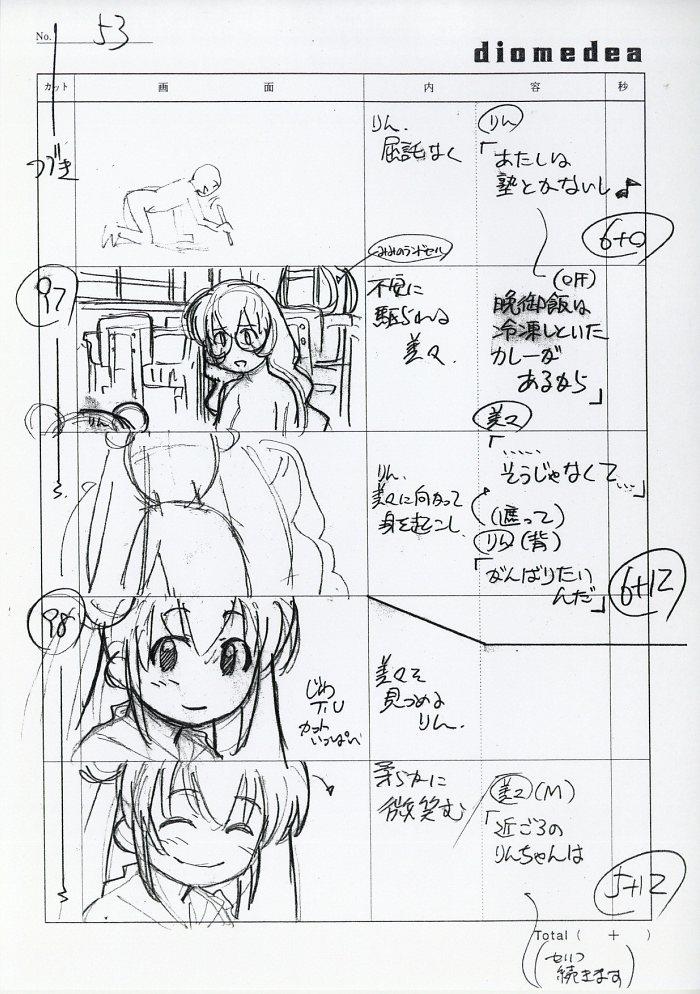 No. 53
diomedea
カット 画 面 内 容 秒
つづき
りん、
屈託なく
りん
「あたしは
塾とかないし♪
6+0
97
みみのランドセル
不安に
駆られる
美々、
(OFF)
晩御飯は
冷凍しといた
カレーが
あるから」
りん
美々
「……
そうじゃなくて…」
りん、
美々に向かって
身を起こし、
(遮って)
りん(背)
「がんばりたい
んだ」
6+12
98
じわ
T.U
カット
いっぱい
美々を
見つめる
りん、
柔らかに
微笑む
美々(M)
「近ごろの
りんちゃんは
5+12
Total ( + )
(セリフ
続きます)